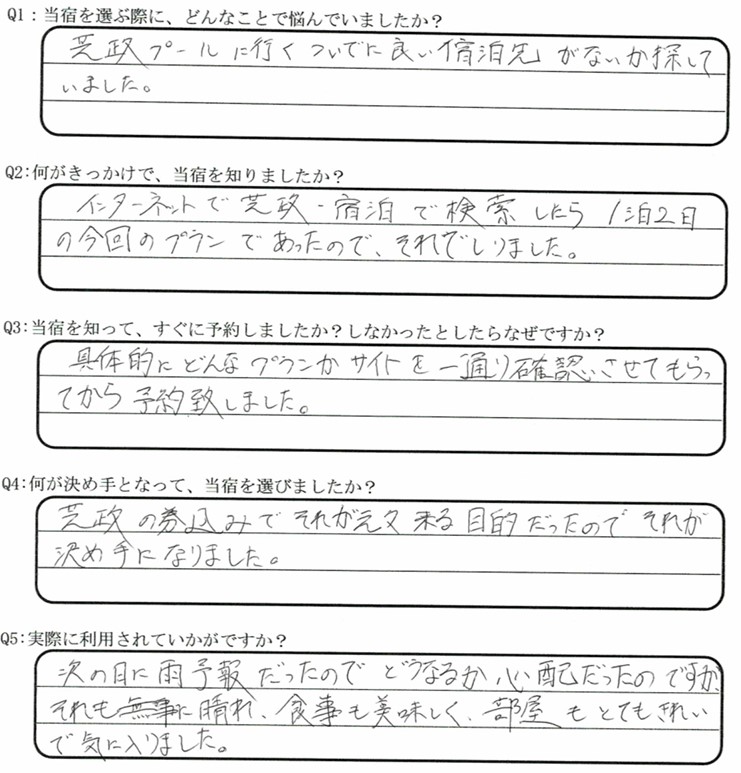 Q1：当宿を選ぶ際に、どんなことで悩んでいましたか？
芝政プールに行くついでに良い宿泊先がないか探して
いました。
Q2：何がきっかけで、当宿を知りましたか？
インターネットで芝政・宿泊で検索したら1泊2日
の今回のプランであったので、それでしりました。
Q3：当宿を知って、すぐに予約しましたか？しなかったとしたらなぜですか？
具体的にどんなプランかサイトを一通り確認させてもらっ
てから予約致しました。
Q4：何が決め手となって、当宿を選びましたか？
芝政の券込みでそれが元々来る目的だったのでそれが
決め手になりました。
Q5：実際に利用されていかがですか？
次の日に雨予報だったのでどうなるか心配だったのですが、
それも無事に晴れ、食事も美味しく、部屋もとてもきれい
で気に入りました。